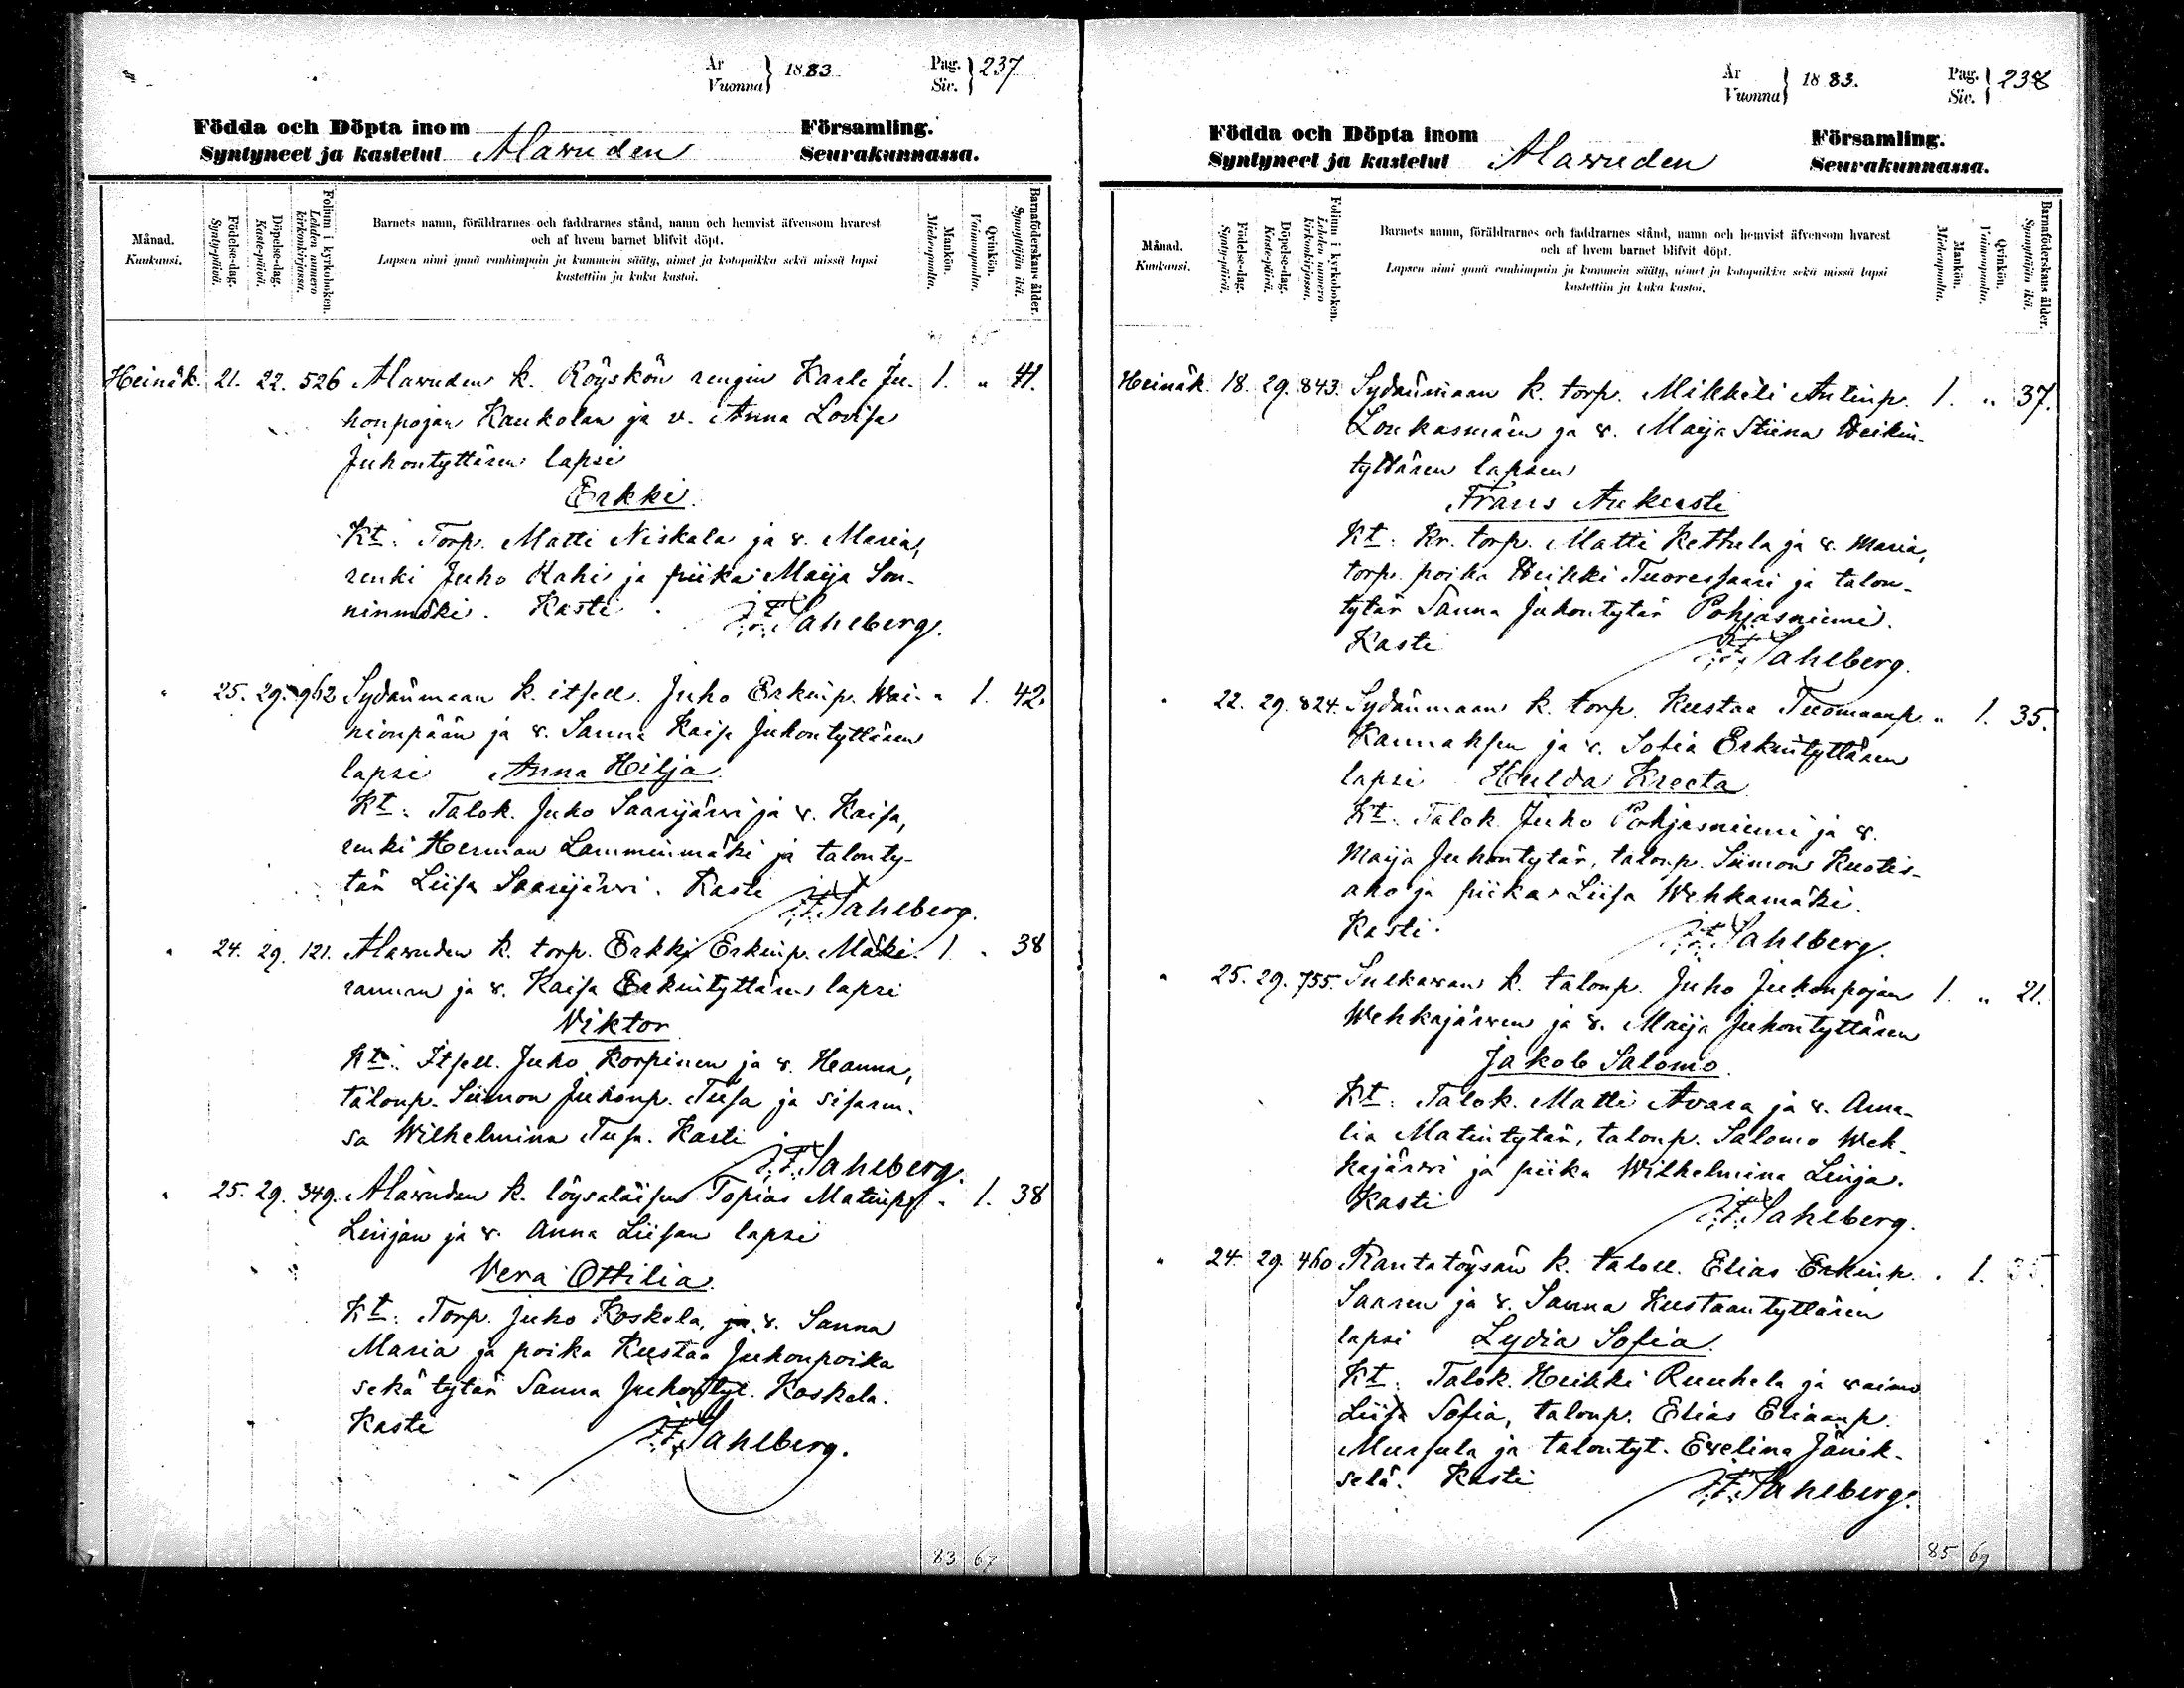 År
Vuonna } 1883.
Pag.
Siv. } 237
Födda och Döpta inom Församling.
Syntyneet ja kastetut Alavuden Seurakunnassa.
Månad.
Kuukausi.
Födelse-dag.
Synty-päivä.
Döpelse-dag.
Kaste-päivä.
Folium i kyrkoboken.
Lehden numero kirkonkirjassa.
Barnets namn, föräldrarnes och faddrarnes stånd, namn och hemvist äfvensom hvarest
och af hvem barnet blifvit döpt.
Lapsen nimi ynnä vanhimpain ja kummein sääty, nimet ja kotopaikka sekä missä lapsi
kastettiin ja kuka kastoi.
Mankön.
Miehenpuolta.
Qvinkön.
Vaimonpuolta.
Barnaföderskans ålder.
Synnyttäjän ikä.
Heinäk. 21. 22. 526 Alavuden k. Röyskön rengin Karle Ju- 1. " 41.
honpojan Kaukolan ja v. Anna Lovisa
Juhontyttären lapsi
Erkki
Kt: Torp. Matti Niskala ja v. Maria,
renki Juho Kahi ja piika Maija Son-
ninmäki. Kasti
J. F. Sahlberg.
" 25. 29. 962 Sydänmaan k. itsell. Juho Erkinp. Wai- " 1. 42.
nionpään ja v. Sanna Kaisa Juhontyttären
lapsi Anna Hilja
Kt: Talok. Juho Saarijärvi ja v. Kaisa,
renki Herman Lamminmäki ja talonty-
tär Liisa Saarijärvi. Kasti
J. F. Sahlberg.
" 24. 29. 121. Alavuden k. torp. Erkki Erkinp. Mäki- 1. " 38
rannan ja v. Kaisa Erkintyttären lapsi
Viktor
Kt: Itsell. Juho Korpinen ja v. Hanna,
talonp. Siimon Juhonp. Tusa ja sisaren-
sa Wilhelmina Tusa. Kasti
J. F. Sahlberg.
" 25. 29. 349. Alavuden k. löysäläisen Topias Matinp. " 1. 38
Linjan ja v. Anna Liisan lapsi
Vera Ottilia
Kt: Torp. Juho Koskela, ja v. Sanna
Maria ja poika Kustaa Juhonpoika
sekä tytär Sanna Juhontyt. Koskela.
Kasti
J. F. Sahlberg.
83 67
År
Vuonna } 1883.
Pag.
Siv. } 238
Födda och Döpta inom Församling.
Syntyneet ja kastetut Alavuden Seurakunnassa.
Månad.
Kuukausi.
Födelse-dag.
Synty-päivä.
Döpelse-dag.
Kaste-päivä.
Folium i kyrkoboken.
Lehden numero kirkonkirjassa.
Barnets namn, föräldrarnes och faddrarnes stånd, namn och hemvist äfvensom hvarest
och af hvem barnet blifvit döpt.
Lapsen nimi ynnä vanhimpain ja kummein sääty, nimet ja kotopaikka sekä missä lapsi
kastettiin ja kuka kastoi.
Mankön.
Miehenpuolta.
Qvinkön.
Vaimonpuolta.
Barnaföderskans ålder.
Synnyttäjän ikä.
Heinäk. 18. 29. 843. Sydänmaan k. torp. Mikkeli Antinp. 1. " 37.
Loukasmäen ja v. Maija Stiina Heikin-
tyttären lapsen
Frans Aukusti
Kt: Kr. torp. Matti Kettula ja v. Maria,
torp. poika Heikki Tuoressaari ja talon-
tytär Sanna Juhontytär Pohjasniemi.
Kasti
J. F. Sahlberg.
" 22. 29. 824. Sydänmaan k. torp. Kustaa Tuomaanp. " 1. 35.
Kannaksen ja v. Sofia Erkintyttären
lapsi Hulda Kreeta
Kt: Talok. Juho Pohjasniemi ja v.
Maija Juhontytär, talonp. Siimon Kuotis-
aho ja piika Liisa Wehkamäki.
Kasti
J. F. Sahlberg.
" 25. 29. 755. Sulkavan k. talonp. Juho Juhonpojan 1. " 21.
Wehkajärven ja v. Maija Juhontyttären
Jakob Salomo
Kt: Talok. Matti Avara ja v. Ama-
lia Matintytär, talonp. Salomo Weh-
kajärvi ja piika Wilhelmina Linja.
Kasti
J. F. Sahlberg.
" 24. 29. 460 Rantatöysän k. taloll. Elias Erkinp. " 1. 35
Saaren ja v. Sanna Kustaantyttären
lapsi Lydia Sofia
Kt: Talok. Heikki Ruuhela ja vaimo
Liisa Sofia, talonp. Elias Eliaanp.
Mursula ja talontyt. Evelina Jänik-
selä. Kasti
J. F. Sahlberg.
85 69